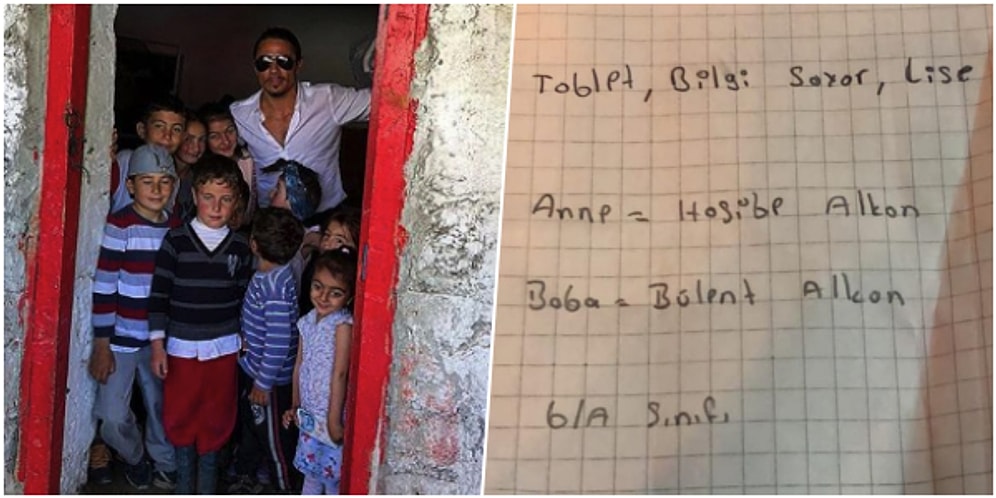 Tablet, Bilgi Sayar, Lise
Anne = Hasibe Alkan
Baba = Bülent Alkan
6/A Sınıfı